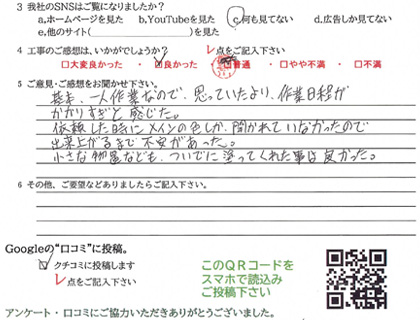 3 我社のSNSはご覧になりましたか?
a,ホームページを見た b.YouTubeを見た c,何も見てない d.広告しか見てない
e,他のサイト( )を見た
4 工事のご感想は、いかがでしょうか? レ点をご記入下さい
□大変良かった ・ ☑良かった ・ 普通 ・ □やや不満 ・ □不満
5 ご意見・ご感想をお聞かせ下さい。
基本、一人作業なので、思っていたより、作業日程が
かかりすぎと感じた。
依頼した時にメインの色しか、聞かれていなかったので
出来上がるまで不安があった。
小さな物置なども、ついでに塗ってくれた事は良かった。
6 その他、ご要望などありましたらご記入下さい。
Googleの"口コミ"に投稿。
☑ クチコミに投稿します
レ点をご記入下さい
このQRコードを
スマホで読込み
ご投稿下さい
アンケート・口コミにご協力いただきありがとうございました。